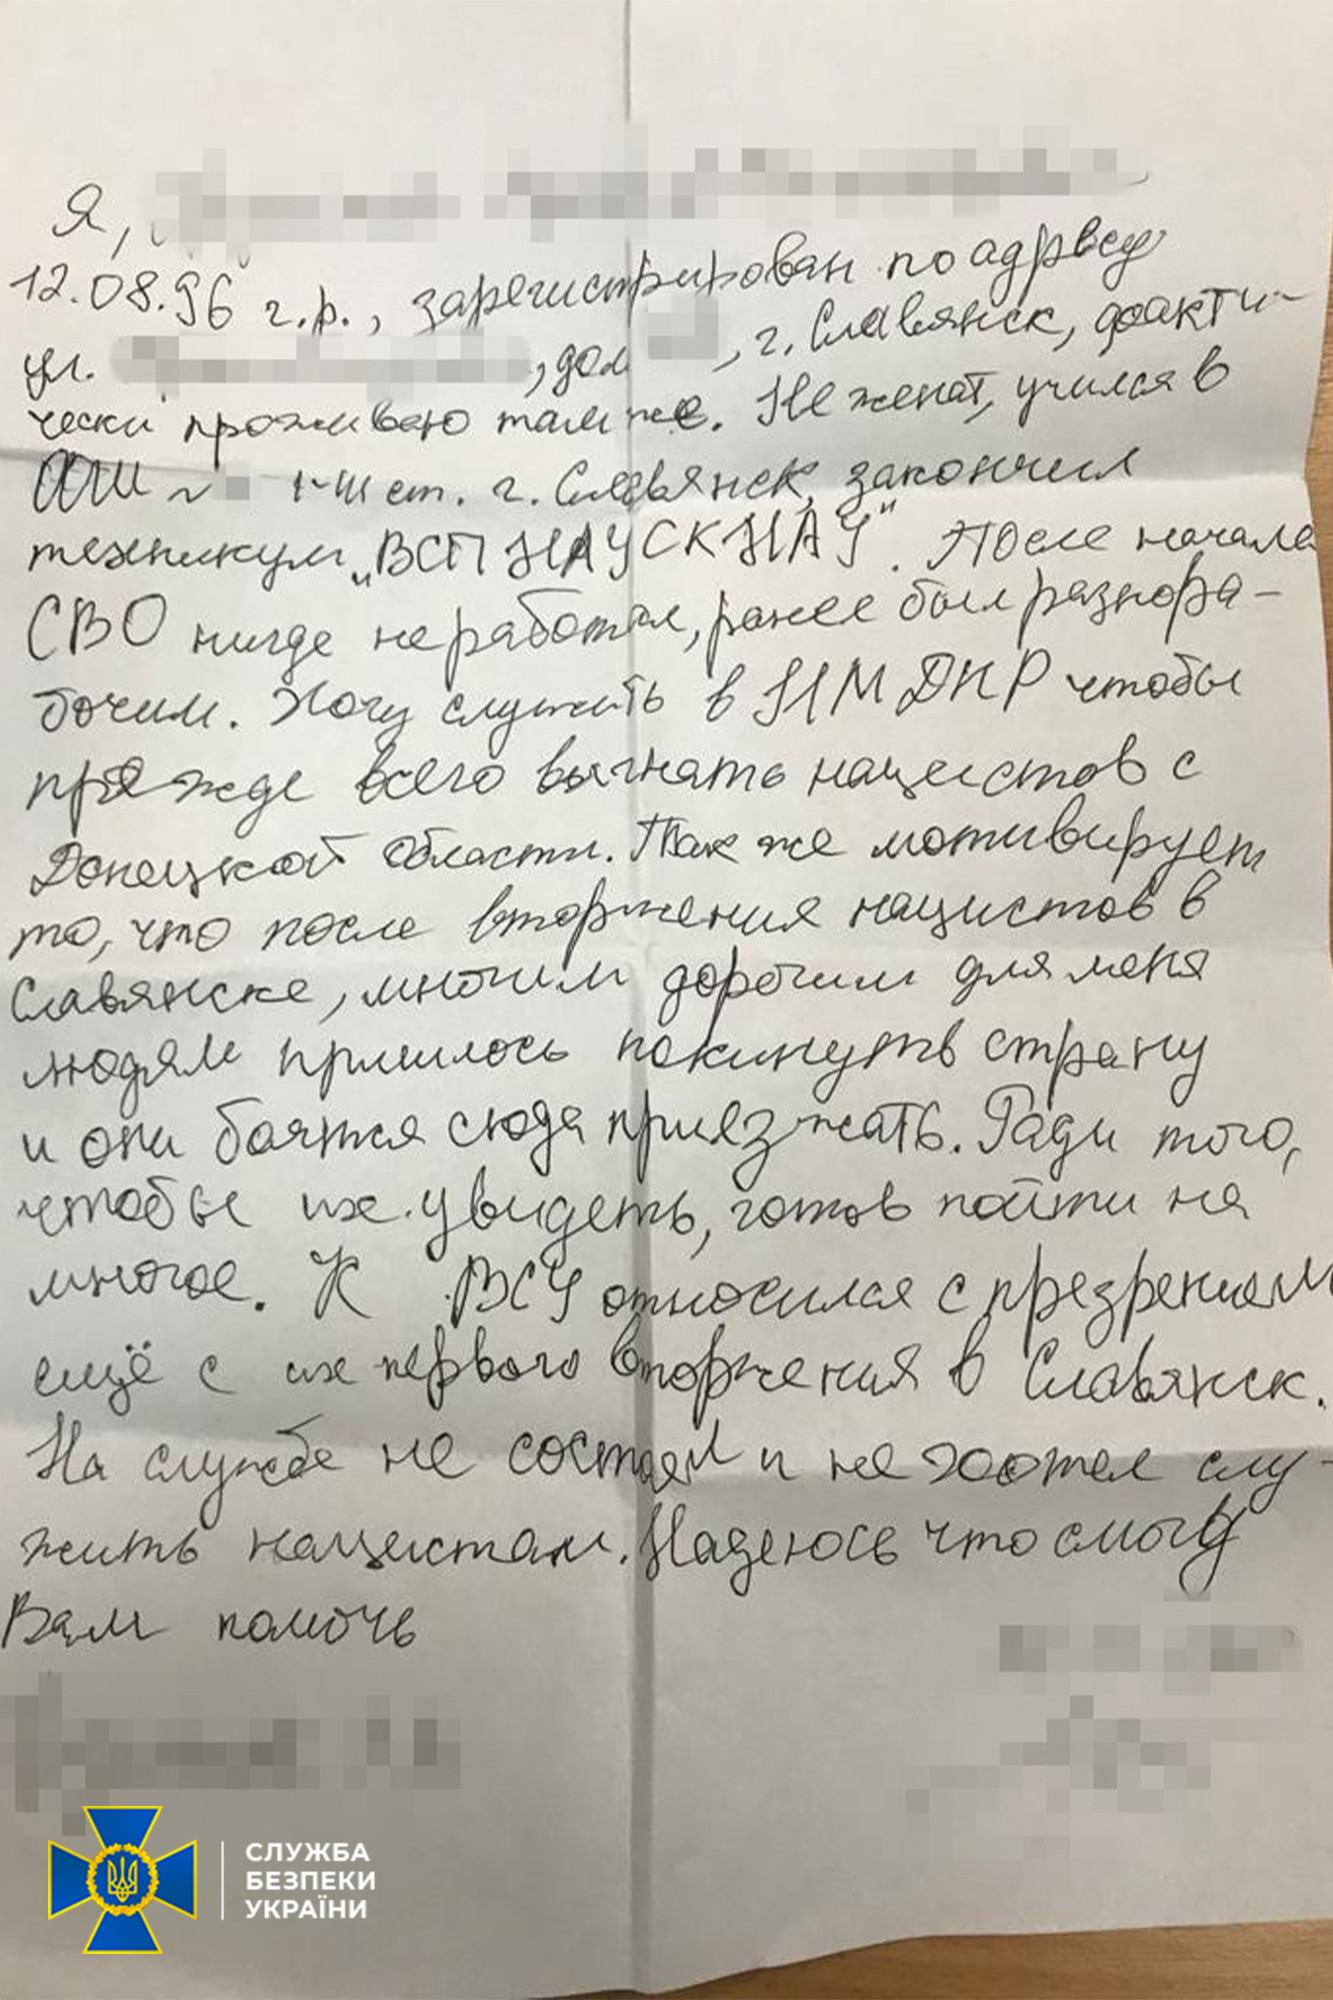 Я,
12.08.96 г.р., зарегистрирован по адресу
ул. , дом , г. Славянск, факти-
чески проживаю там же. Не женат, учился в
ОШ № I-III ст. г. Славянск, закончил
техникум „ВСП НАУ СКНАУ". После начала
СВО нигде не работал, ранее был разнора-
бочим. Хочу служить в НМ ДНР чтобы
прежде всего выгнать нацистов с
Донецкой области. Так же мотивирует
то, что после вторжения нацистов в
Славянске, многим дорогим для меня
людям пришлось покинуть страну
и они боятся сюда приезжать. Ради того,
чтобы их увидеть, готов пойти на
многое. К ВСУ относился с презрением
ещё с их первого вторжения в Славянск.
На службе не состоял и не хотел слу-
жить нацистам. Надеюсь что смогу
Вам помочь
СЛУЖБА
БЕЗПЕКИ
УКРАЇНИ